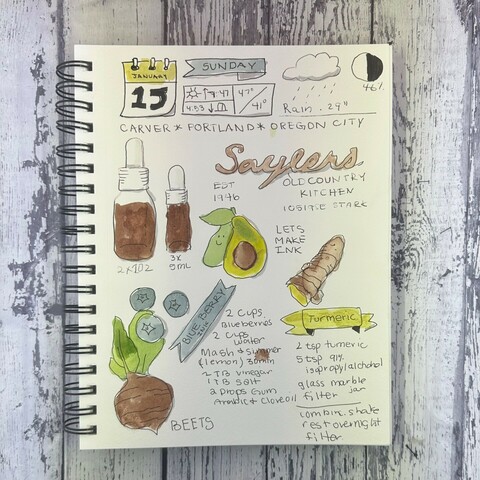 JANUARY
15
SUNDAY
7:47
4:53
47°
41°
Rain .29"
46%
CARVER * PORTLAND * OREGON CITY
Saylers
EST
1946
OLD COUNTRY
KITCHEN
10519 SE STARK
LETS
MAKE
INK
2X1OZ
3X
5ML
BLUE BERRY
2 CUPS
Blueberries
2 CUPS
water
Mash & simmer
(lemon) 30min
2 TB vinegar
1 TB salt
2 Drops Gum
Arabic + Clove oil
Turmeric
2 tsp turmeric
5 tsp 91%
isopropyl alchohol
glass marble
filter jar
combine, shake
rest overnight
filter
BEETS